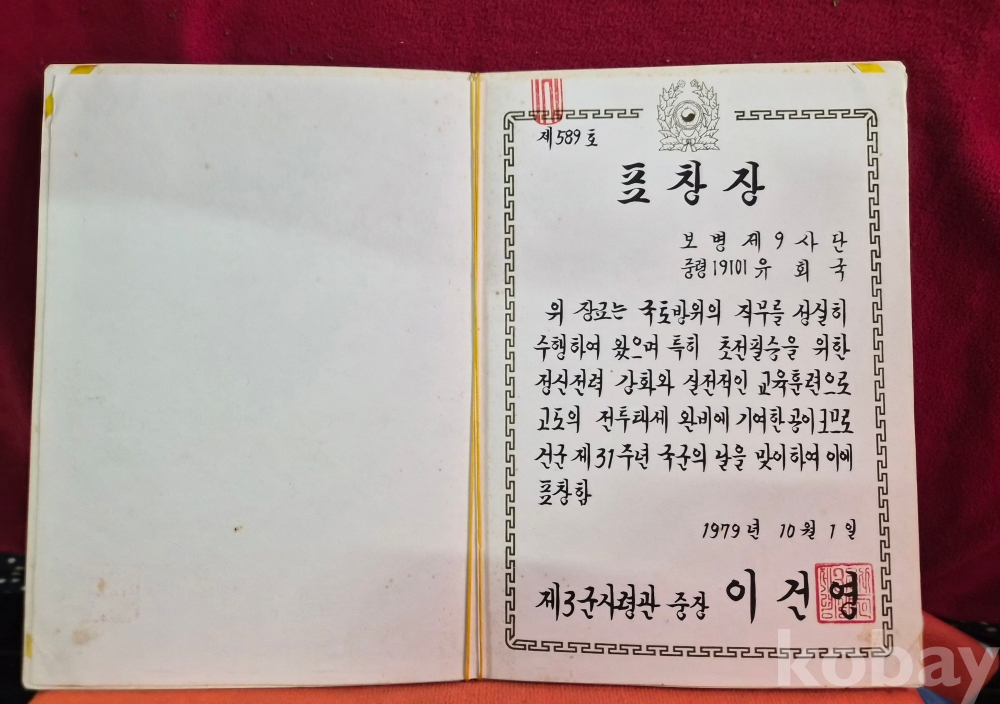 제 589 호
표 창 장
보 병 제 9 사 단
중령 19101 유 회 국
위 장교는 국토방위의 직무를 성실히
수행하여 왔으며 특히 초전필승을 위한
정신전력 강화와 실전적인 교육훈련으로
고도의 전투태세 완비에 기여한공이크므로
건군 제31주년 국군의 날을 맞이하여 이에
표창함
1979년 10월 1일
제3군사령관 중장 이 건 영
kobay